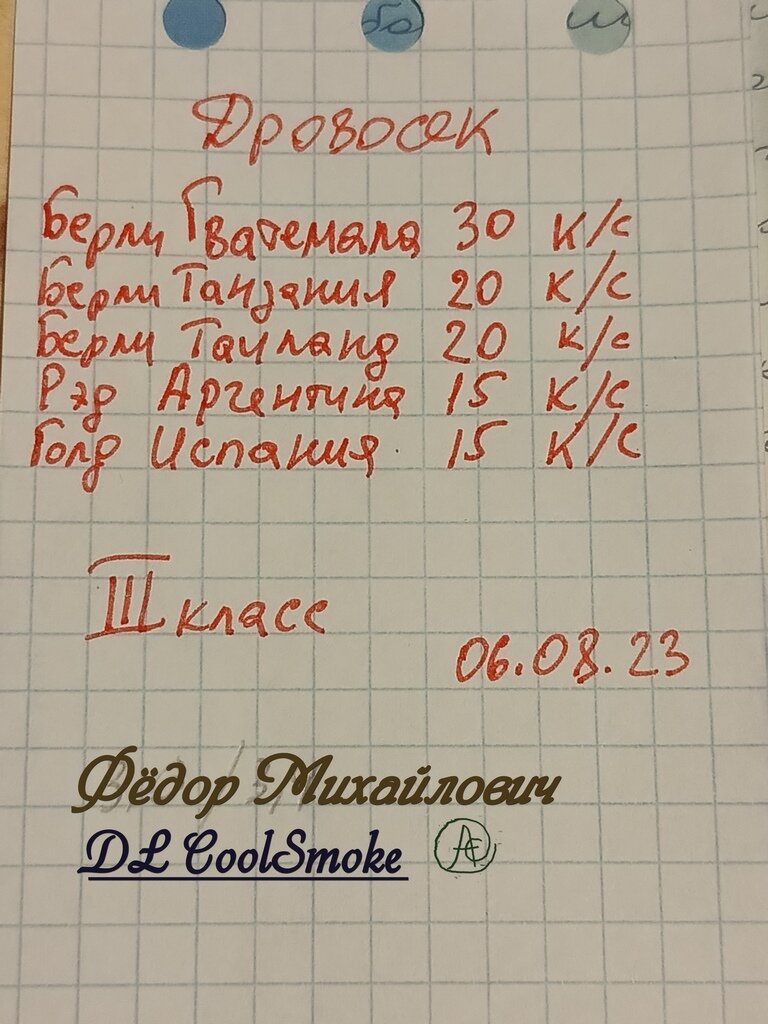 Дровосек
Берли Гватемала 30 к/с
Берли Танзания 20 к/с
Берли Тайланд 20 к/с
Рэд Аргентина 15 к/с
Голд Испания 15 к/с
III класс
06.08.23
Фёдор Михайлович
DL CoolSmoke